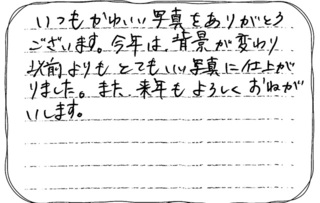 いつもかわいい写真をありがとう
ございます。今年は、背景が変わり
以前よりもとてもいい写真に仕上が
りました。また、来年もよろしくおねが
いします。